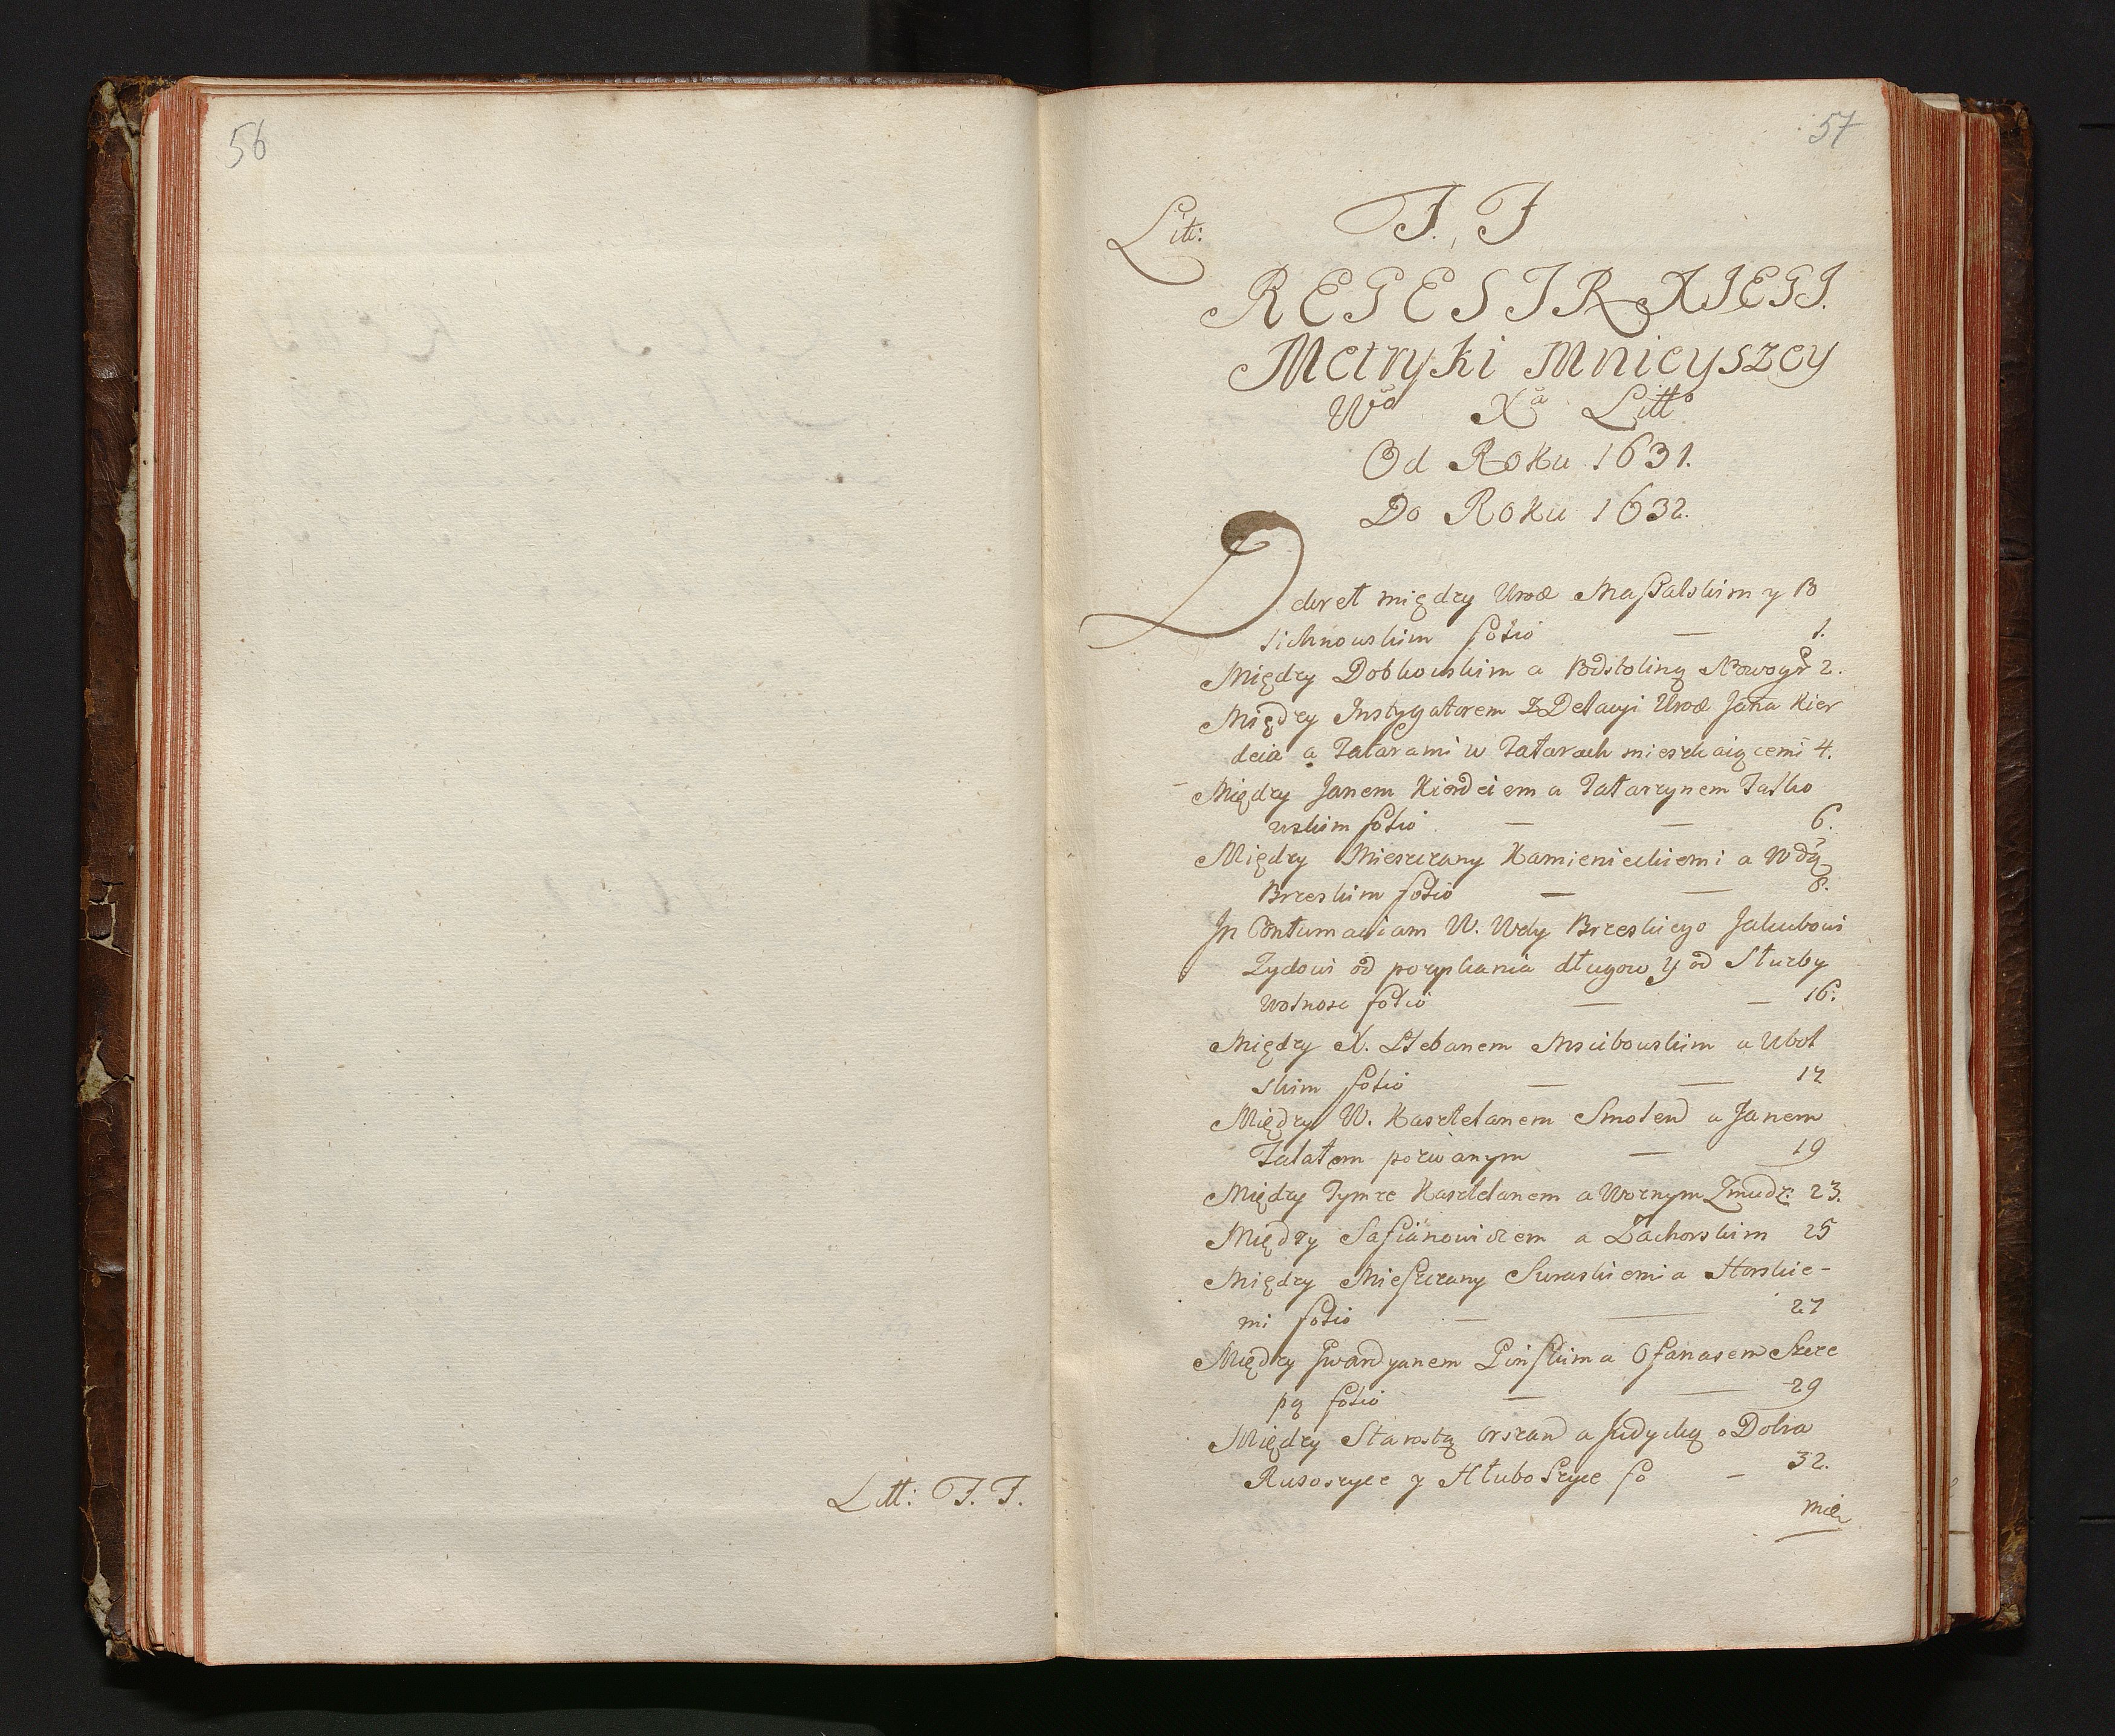 56
Litt: F. F.
57
Litt: F. F
REGESTR XIEGI.
Metryki Mnieyszey
Wo Xa Litto
Od Roku 1631.
Do Roku 1632.
Dekret między Urod Massalskim y B
sichnowskim folio — 1.
Między Dobkowskim a Podstoliną Nowogr 2.
Między Instygatorem z Delacyi Urod Jana Kier
deia a Tatarami w Tatarach mieszkaiącemi 4.
Między Janem Kierdeiem a Tatarzynem Tasko
wskim folio — — 6.
Między Mieszczany Kamienieckiemi a Wdą
Brzeskim folio — — 8.
In Contumaciam W. Wdy Brzeskiego Jakubowi
Zydowi od pozyskania długow y od Służby
wolnosc folio — — 16:
Między X. Plebanem Mscibowskim a Wol
skim folio — — 17
Między W. Kasztelanem Smolen a Janem
Talatem pozwanym — 19
Między Tymze Kasztelanem a Woznym Zmudz: 23.
Między Safianowiczem a Zachorskim 25
Między Mieszczany Suraskiemi a Horskie-
mi folio — — 27
Między Gwardyanem Pinskim a Ofanasem Szcze
pą folio — — 29
Między Starostą Orszan a Judycką o Dobra
Rusoszyce y Hłuboszyce fo — 32.
Mie